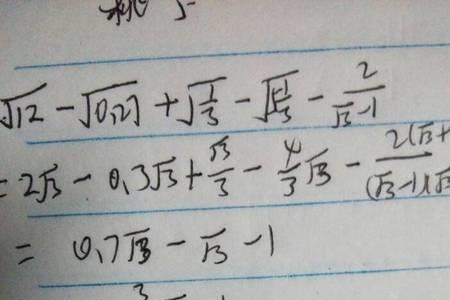 √12 - √0.27 + √(1/3) - √(5 1/3) - 2/(√3-1)
= 2√3 - 0.3√3 + √3/3 - 4/3 √3 - 2(√3+ / (√3-1)(√3
= 0.7√3 - √3 - 1